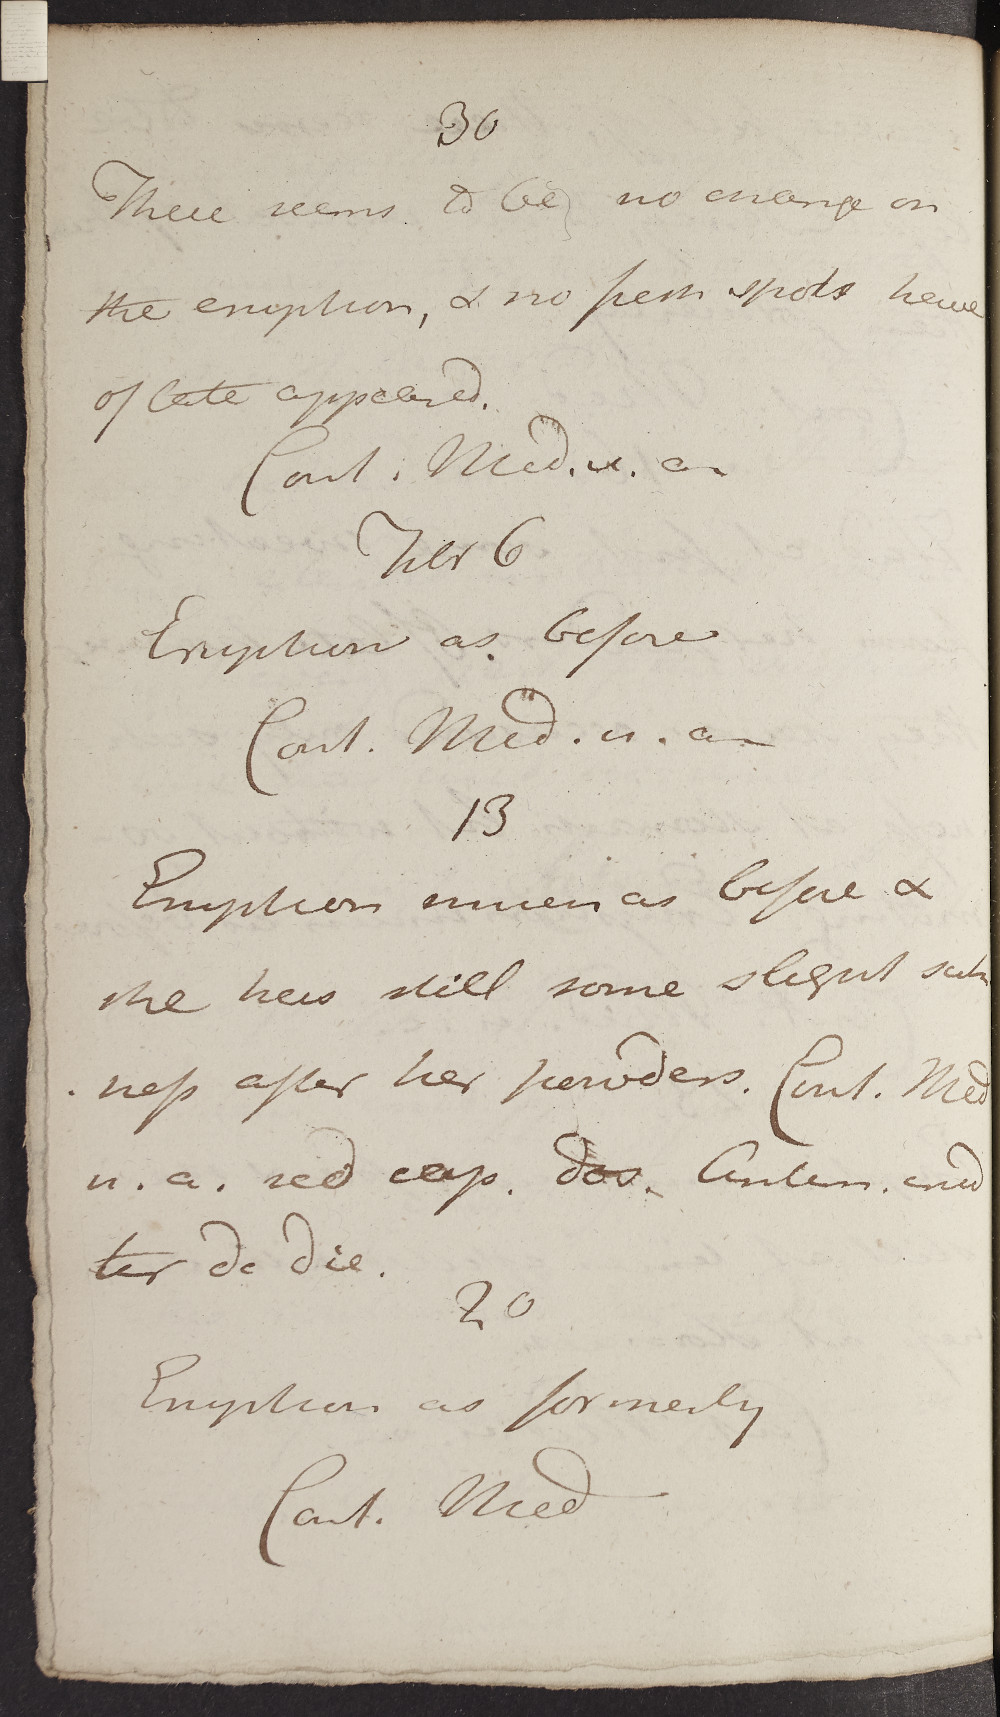 30
There seems to be no change on
the eruption, & no fresh spots have
of late appeared.
Cont. Med. u. a
Febr 6
Eruption as before
Cont. Med. u. a
13
Eruption much as before &
she has still some slight sick
. ness after her powders. Cont. Med
u. a. sed cap. dos. Antim. crud
ter de die.
20
Eruption as formerly
Cont. Med